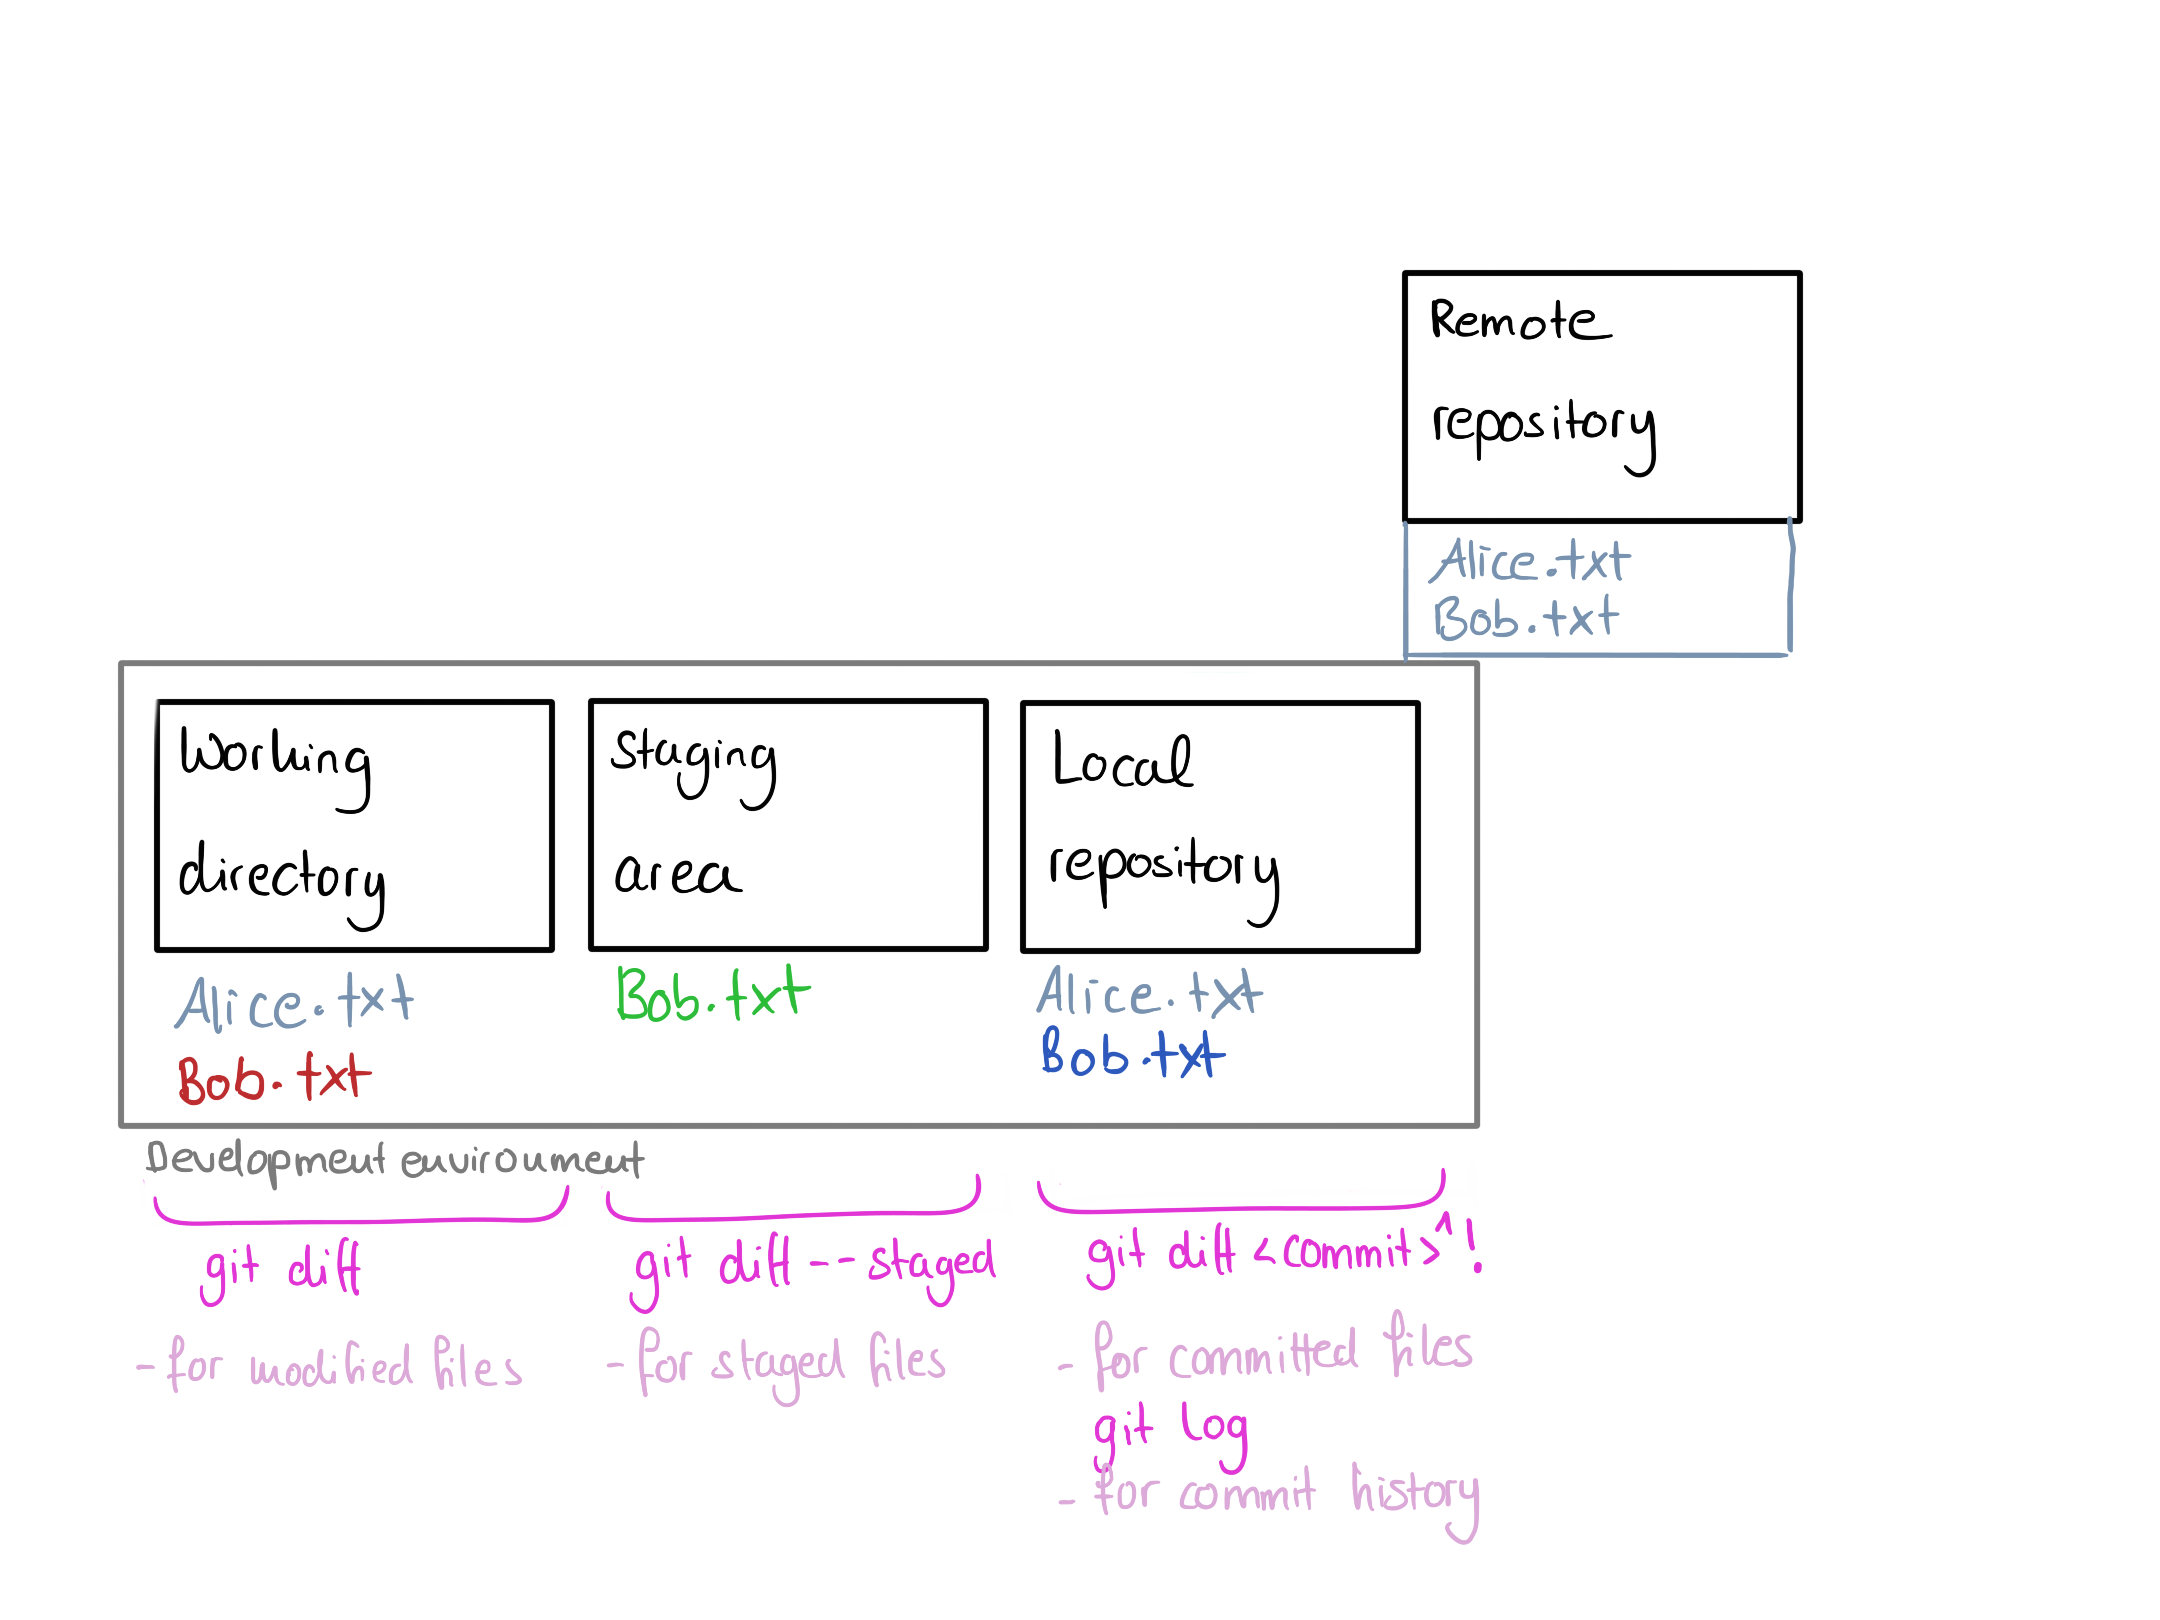 Remote
repository
Alice.txt
Bob.txt
Working
directory
Alice.txt
Bob.txt
Staging
area
Bob.txt
Local
repository
Alice.txt
Bob.txt
Development environment
git diff
- for modified files
git diff --staged
- for staged files
git diff <commit>^!
- for committed files
git log
- for commit history